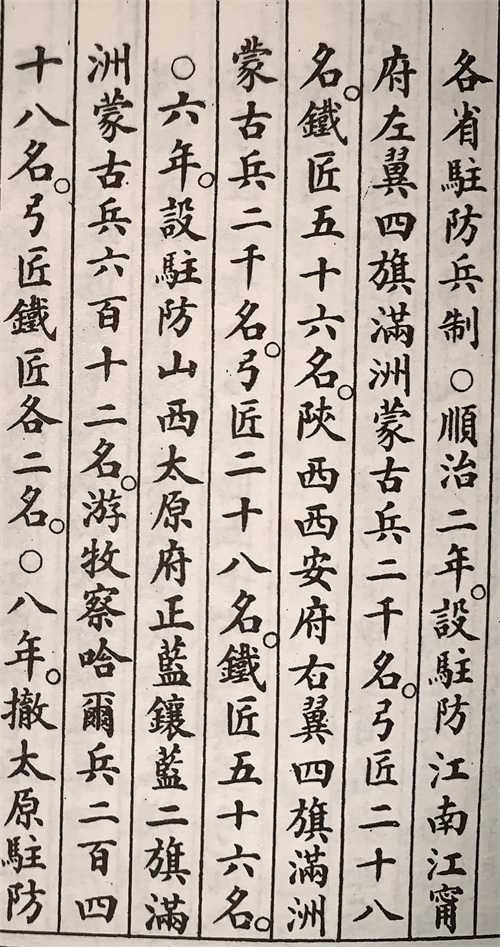 各省駐防兵制○順治二年。設駐防江南江甯
府左翼四旗滿洲蒙古兵二千名。弓匠二十八
名。鐵匠五十六名。陝西西安府右翼四旗滿洲
蒙古兵二千名。弓匠二十八名。鐵匠五十六名。
○六年。設駐防山西太原府正藍鑲藍二旗滿
洲蒙古兵六百十二名。游牧察哈爾兵二百四
十八名。弓匠鐵匠各二名。○八年。撤太原駐防